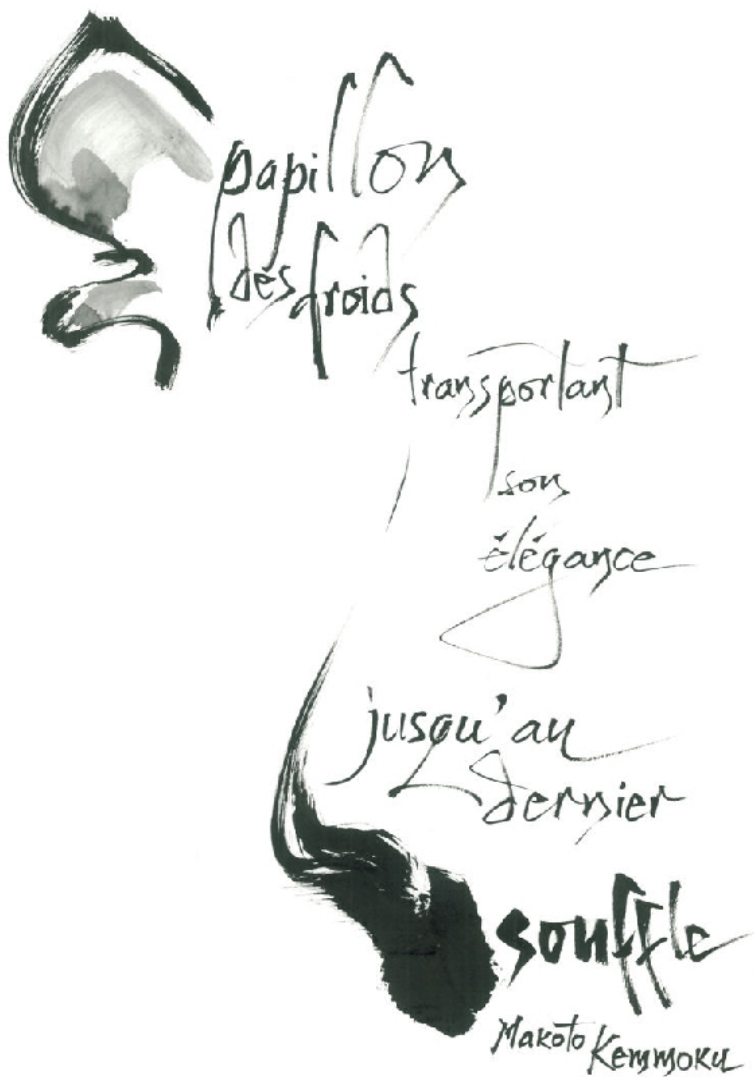 papillon
des froids
transportant
son
élégance
jusqu'au
dernier
souffle
Makoto Kemmoku